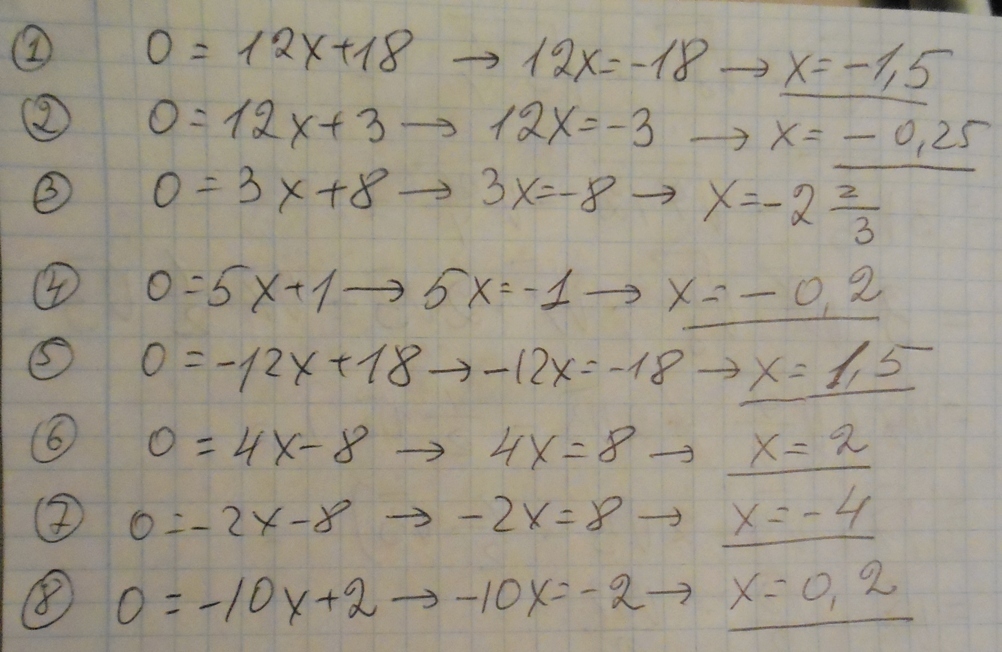 ① 0 = 12x+18 → 12x=-18 → x=-1,5
② 0=12x+3 → 12x=-3 → x= -0,25
③ 0=3x+8 → 3x=-8 → x=-2 2/3
④ 0=5x+1 → 5x=-1 → x=-0,2
⑤ 0=-12x+18 → -12x=-18 → x=1,5
⑥ 0=4x-8 → 4x=8 → x=2
⑦ 0=-2x-8 → -2x=8 → x=-4
⑧ 0=-10x+2 → -10x=-2 → x=0,2